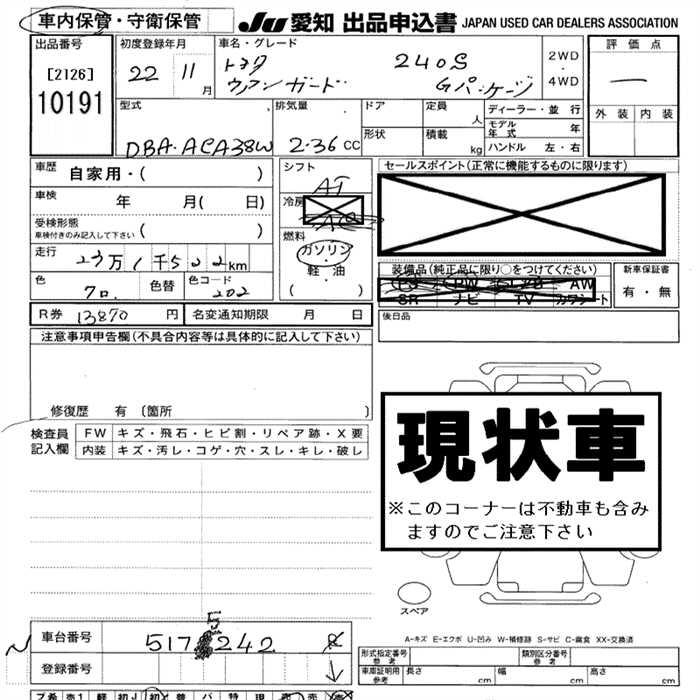 車内保管・守衛保管
JU 愛知 出品申込書 JAPAN USED CAR DEALERS ASSOCIATION
出品番号
[2126]
10191
初度登録年月
22 11月
車名・グレード
トヨタ 240S
ヴァンガード Gパッケージ
2WD
・
4WD
評価点
—
外装 内装
型式
DBA-ACA38W
排気量
2.36CC
ドア
形状
定員
人
積載
kg
ディーラー・並行
モデル年式 年
ハンドル 左・右
車歴 自家用・( )
車検 年 月( 日)
受検形態
車検付きのみ記入して下さい ( )
走行 23万1千522km
色 クロ. 色替 色コード 202
シフト
AT
冷房
AC
燃料
ガソリン
・
軽・油
( )
セールスポイント(正常に機能するものに限ります)
装備品(純正品に限り○をつけてください)
PS PW AW
SR ナビ TV カワシート
新車保証書
有・無
R券 13870円 名変通知期限 月 日
後日品
注意事項申告欄(不具合内容等は具体的に記入して下さい)
修復歴 有(箇所 )
検査員記入欄
FW キズ・飛石・ヒビ割・リペア跡・X要
内装 キズ・汚レ・コゲ・穴・スレ・キレ・破レ
現状車
※このコーナーは不動車も含み
ますのでご注意下さい
スペア
A-キズ E-エクボ U-凹み W-補修跡 S-サビ C-腐食 XX-交換済
車台番号 5175242
登録番号
形式指定番号
参考
類別区分番号
参考
車庫証明用
参考
長さ cm 幅 cm 高さ cm